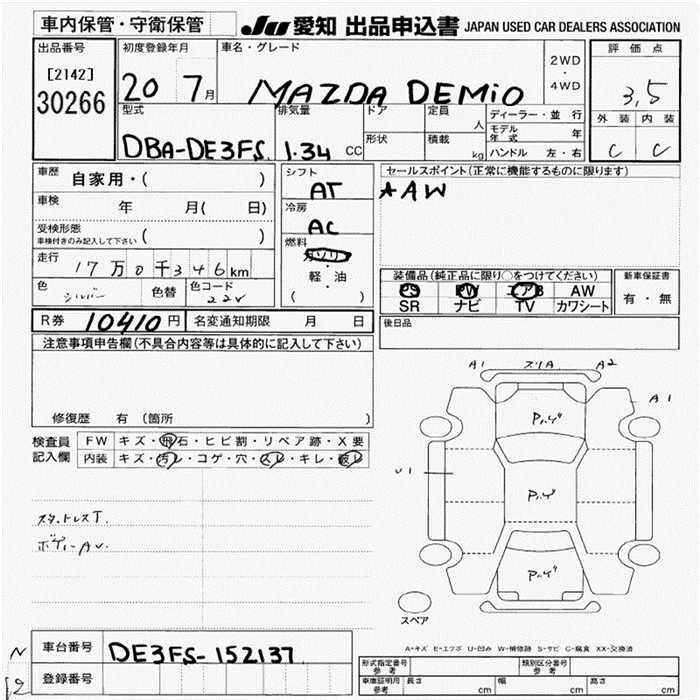 車内保管・守衛保管
JU 愛知 出品申込書 JAPAN USED CAR DEALERS ASSOCIATION
出品番号
[2142]
30266
初度登録年月
20 7月
車名・グレード
MAZDA DEMiO
2WD
・
4WD
評価点
3,5
外装 内装
C C
型式
DBA-DE3FS
排気量
1.34 CC
ドア
形状
定員
人
積載
kg
ディーラー・並行
モデル年式 年
ハンドル 左・右
車歴
自家用・( )
車検
年 月( 日)
受検形態
車検付きのみ記入して下さい ( )
走行
17万0千346km
色
シルバー
色替
色コード
22V
シフト
AT
冷房
AC
燃料
ガソリン
軽・油
( )
セールスポイント(正常に機能するものに限ります)
★AW
装備品(純正品に限り○をつけてください)
PS PW エアB AW
SR ナビ TV カワシート
新車保証書
有・無
後日品
R券 10410円 名変通知期限 月 日
注意事項申告欄(不具合内容等は具体的に記入して下さい)
修復歴 有 (箇所 )
検査員
記入欄
FW キズ・飛石・ヒビ割・リペア跡・X要
内装 キズ・汚レ・コゲ・穴・スレ・キレ・破レ
スタットレスT.
ボディーAU.
A1 スリA A2
A1
U1
スペア
A-キズ E-エクボ U-凹み W-補修跡 S-サビ C-腐食 XX-交換済
N
車台番号
DE3FS-152137
登録番号
形式指定番号
参考
類別区分番号
参考
車庫証明用
参考
長さ cm
幅 cm
高さ cm